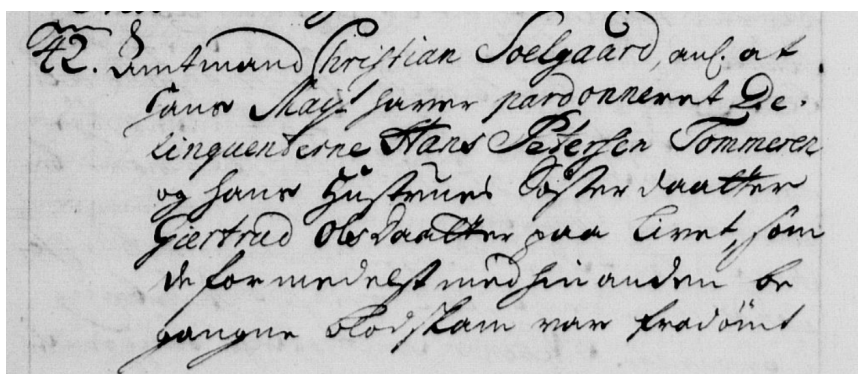 42. Amtmand Christian Soelgaard, anl. at
Hans Mayt. haver pardonneret De-
linquenterne Hans Petersen Tommeren
og hans Hustrues Søster daatter
Giertrud Olsdaatter paa livet, som
de formedelst med hinanden be
gangne blodskam var fradømt